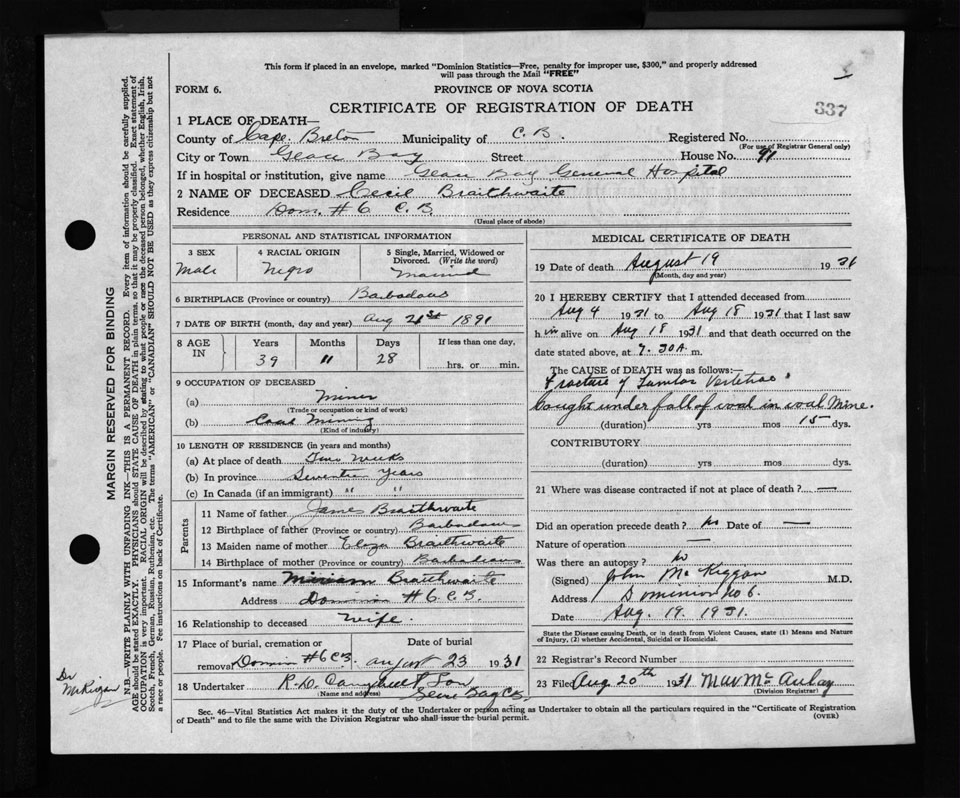 This form if placed in an envelope, marked "Dominion Statistics—Free, penalty for improper use, $300," and properly addressed
will pass through the Mail "FREE"
FORM 6. PROVINCE OF NOVA SCOTIA
CERTIFICATE OF REGISTRATION OF DEATH 337
1 PLACE OF DEATH—
County of Cape Breton Municipality of C.B. Registered No.
(For use of Registrar General only)
City or Town Glace Bay Street House No. 91
If in hospital or institution, give name Glace Bay General Hospital
2 NAME OF DECEASED Cecil Braithwaite
Residence Dom. #6 C.B.
(Usual place of abode)
PERSONAL AND STATISTICAL INFORMATION
3 SEX 4 RACIAL ORIGIN 5 Single, Married, Widowed or
Divorced. (Write the word)
Male Negro Married
6 BIRTHPLACE (Province or country) Barbadous
7 DATE OF BIRTH (month, day and year) Aug 21st 1891
8 AGE IN Years Months Days If less than one day,
39 11 28 hrs. or min.
9 OCCUPATION OF DECEASED
(a) Miner
(Trade or occupation or kind of work)
(b) Coal Mining
(Kind of industry)
10 LENGTH OF RESIDENCE (in years and months)
(a) At place of death Two Weeks
(b) In province Years
(c) In Canada (if an immigrant) " "
Parents
11 Name of father James Braithwaite
12 Birthplace of father (Province or country) Barbadous
13 Maiden name of mother Eliza Braithwaite
14 Birthplace of mother (Province or country) Barbadous
15 Informant's name Miriam Braithwaite
Address Dominion #6 C.B.
16 Relationship to deceased Wife.
17 Place of burial, cremation or Date of burial
removal Domin #6 CB august 23 1931
18 Undertaker R.D. Son
(Name and address) Glace Bay CB.
MEDICAL CERTIFICATE OF DEATH
19 Date of death August 19 1931
(Month, day and year)
20 I HEREBY CERTIFY that I attended deceased from
Aug 4 1931 to Aug 18 1931 that I last saw
h im alive on Aug 18 1931 and that death occurred on
date stated above, at 7.30A m.
The CAUSE OF DEATH was as follows:—
Fracture of Lumbar Vertebrae
Caught under fall of coal in coal Mine.
(duration) yrs mos 15 dys.
CONTRIBUTORY
(duration) yrs. mos. dys.
21 Where was disease contracted if not at place of death? —
Did an operation precede death? No Date of —
Nature of operation —
Was there an autopsy? No
(Signed) John McKiggan M.D.
Address Dominion No 6.
Date Aug. 19. 1931.
State the Disease causing Death, or in death from Violent Causes, state (1) Means and Nature
of Injury, (2) whether Accidental, Suicidal or Homicidal.
22 Registrar's Record Number
23 Filed Aug 20th 1931 McAulay
(Division Registrar)
Sec. 46—Vital Statistics Act makes it the duty of the Undertaker or person acting as Undertaker to obtain all the particulars required in the "Certificate of Registration
of Death" and to file the same with the Division Registrar who shall issue the burial permit. (OVER)
MARGIN RESERVED FOR BINDING
N.B.—WRITE PLAINLY WITH UNFADING INK—THIS IS A PERMANENT RECORD. Every item of information should be carefully supplied.
AGE should be stated EXACTLY. PHYSICIANS should STATE CAUSE OF DEATH in plain terms, so that it may be properly classified. Exact statement of
OCCUPATION is very important. RACIAL ORIGIN will be described by stating to what people or race the deceased person belonged, whether English, Irish,
Scotch, French, German, Russian, Ruthenian, etc. The terms "AMERICAN" or "CANADIAN" SHOULD NOT BE USED as they express citizenship but not
a race or people. Fee instructions on back of Certificate.
Dr